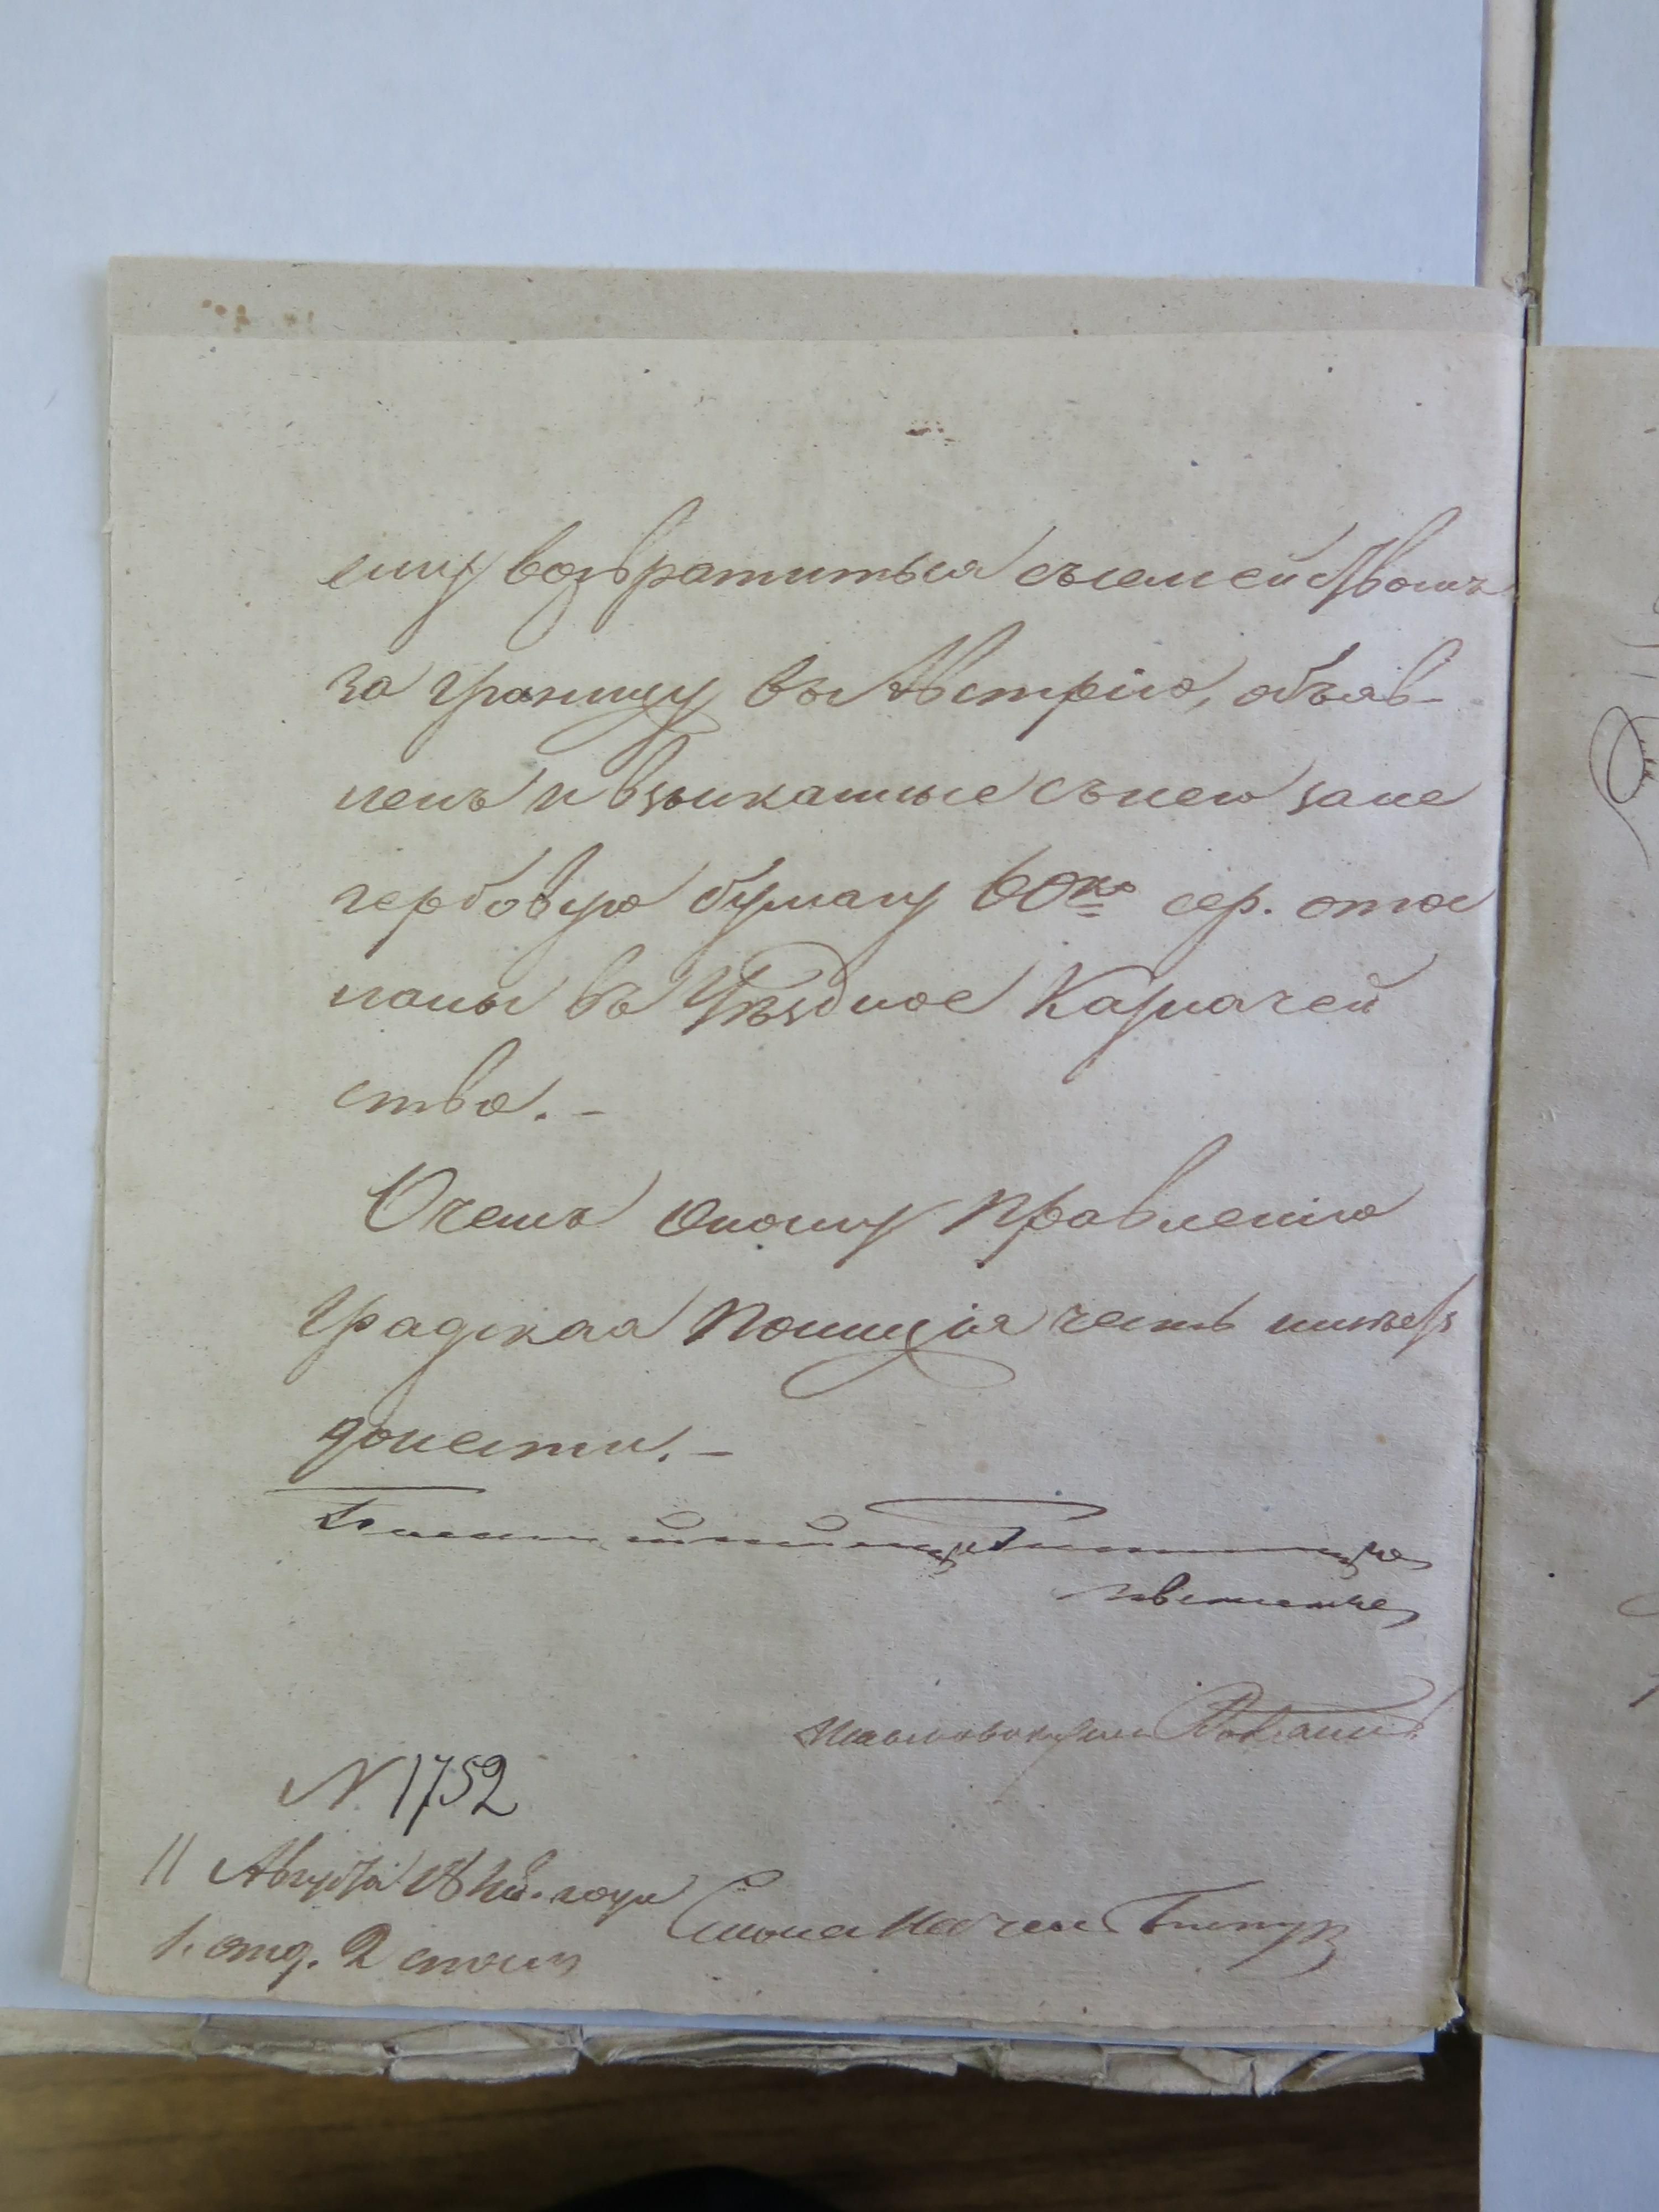 ему возвратиться съ семействомъ
за границу въ Австрію, объяв-
ленъ и взысканные съ него за не
гербовую бумагу 60 ко сер. отос
ланы въ Уѣздное Казначей
ство. –
О чемъ оному Правленію
Градская Полиція честь имѣетъ
донести. –
N 1752
11 Августа года
1. отд. 2 столъ